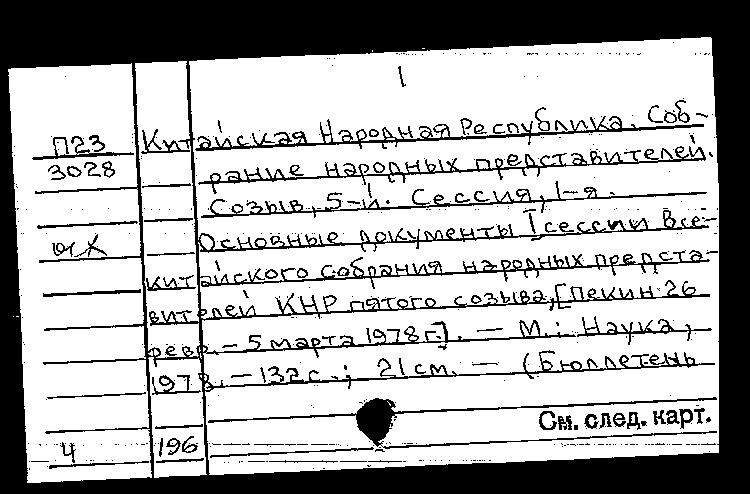 1
П23 Китайская Народная Республика. Соб-
3028 рание народных представителей.
Созыв, 5-й. Сессия, 1-я.
Основные документы I сессии Все-
китайского собрания народных предста-
вителей КНР пятого созыва, [Пекин 26
февр. – 5 марта 1978 г.]. — М.: Наука,
1978. – 132 с.; 21 см. — (Бюллетень
См. след. карт.
4 196